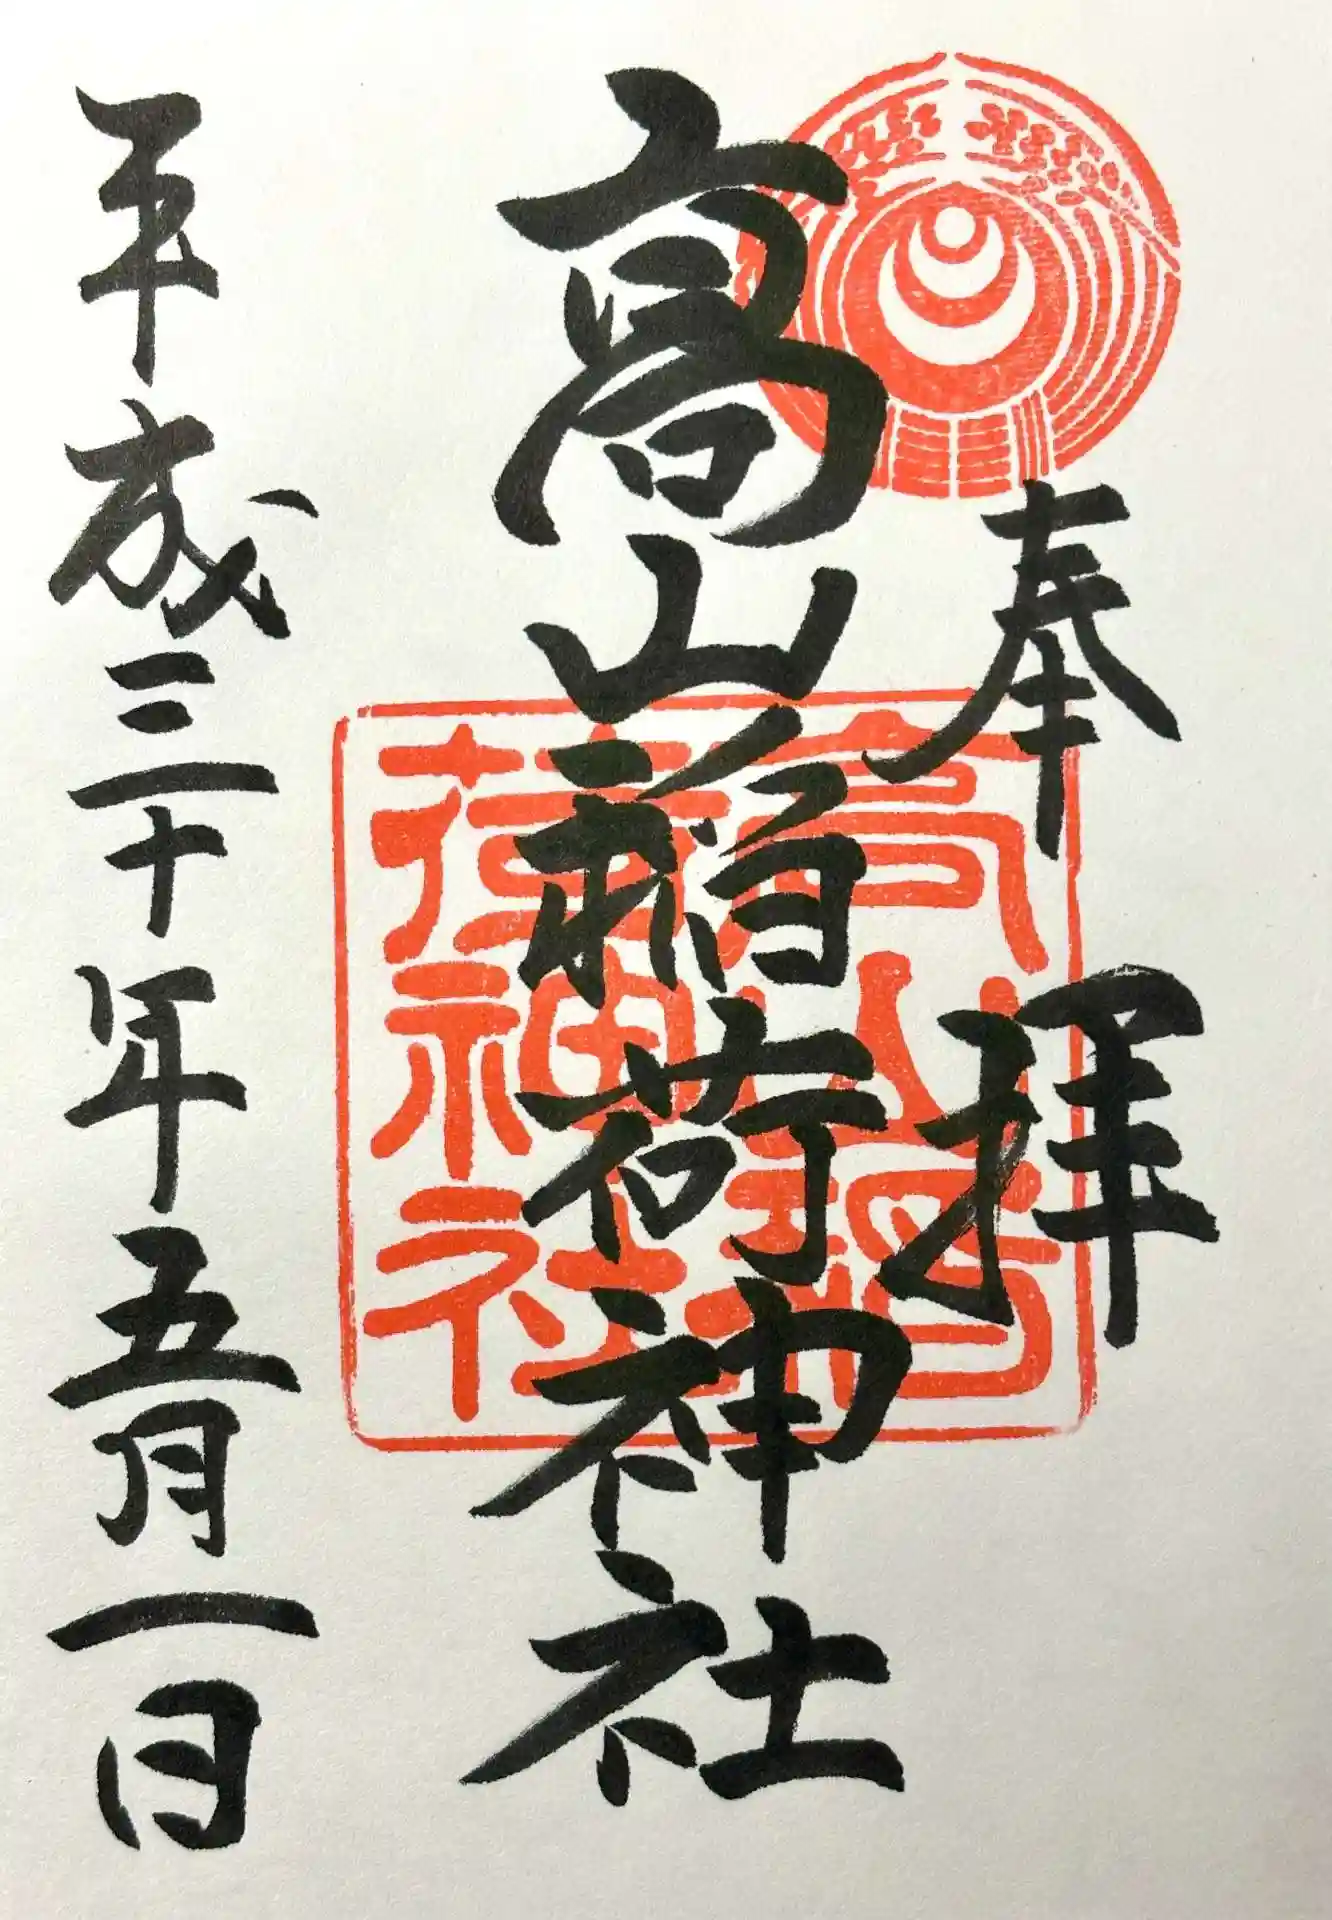 奉拝
高山稲荷神社
高山稲荷神社
平成三十年五月一日